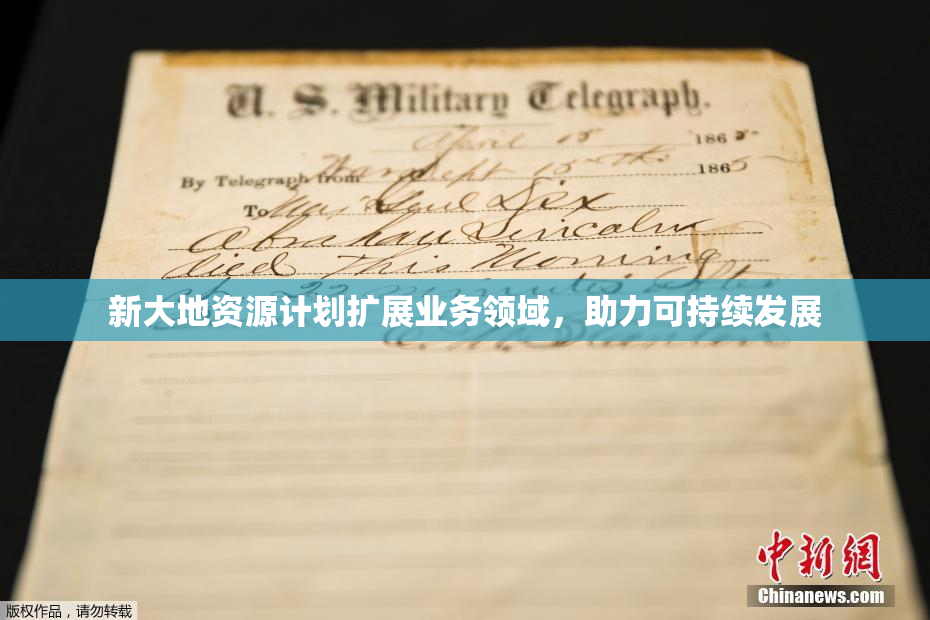 U. S. Military Telegraph.
April 15 1865
By Telegraph from War Dept 15th 1865
To Maj Genl Dix
Abraham Lincoln
died This Morning
at 22 minutes after
新大地资源计划扩展业务领域，助力可持续发展
E. M. Stanton
中新网
Chinanews.com
版权作品，请勿转载